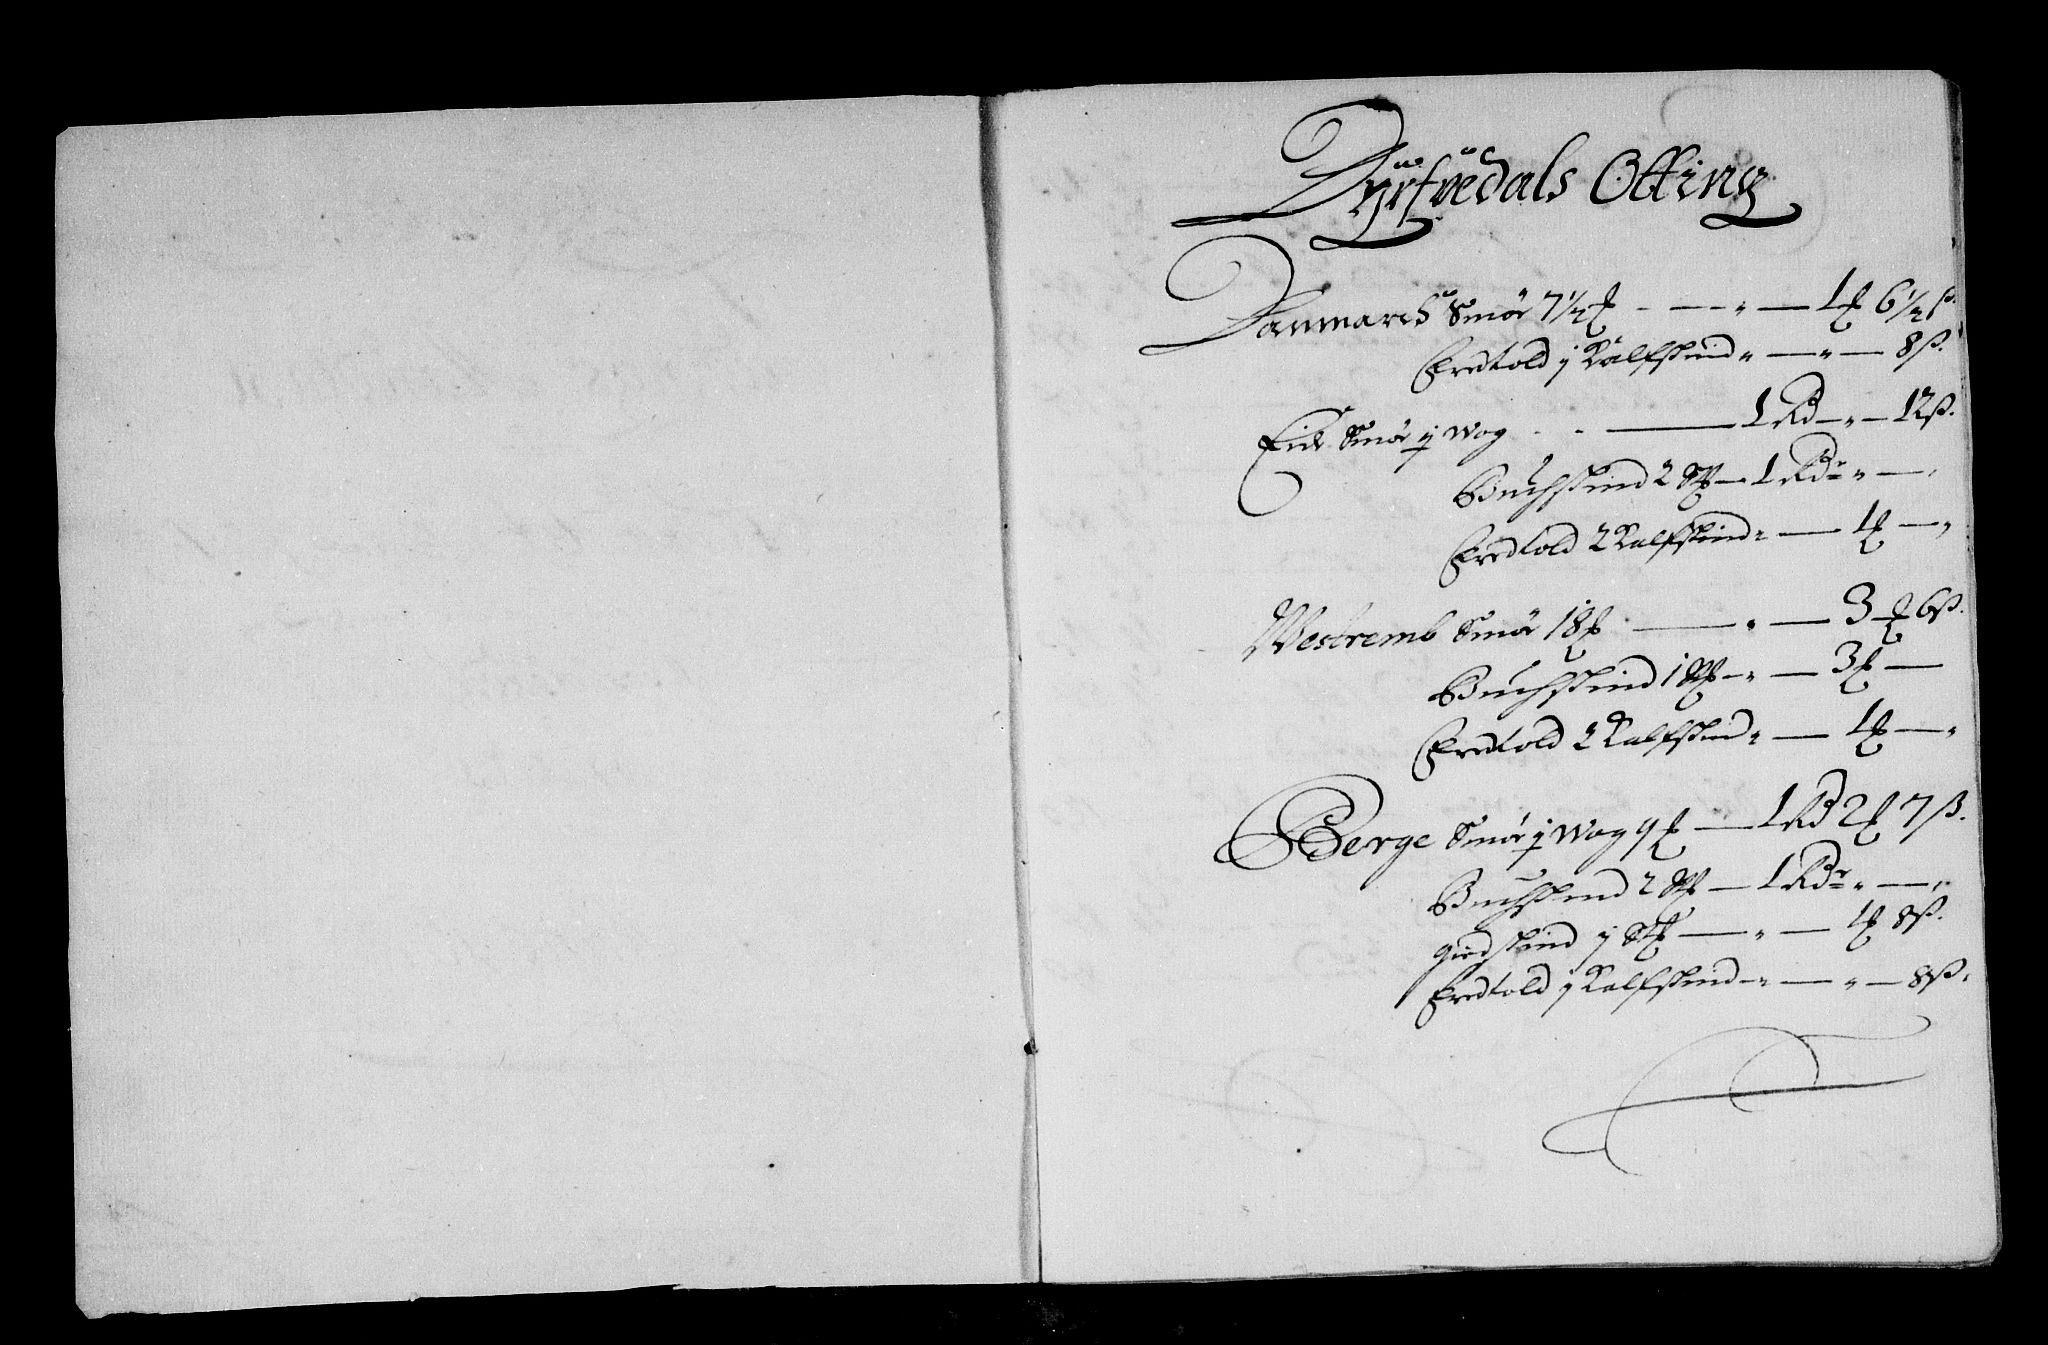 Dyrsuedals Otting
Danmarch Smör 7½ ℔ - — „ — 1 ℔ 6½ ß.
Fredtold j Kalfskind „ — „ — 8 ß.
Eide Smör ij Wog - - — 1 Rd — „ — 12 ß.
Buchskind 2 St — 1 Rdr „ — „
Fredtold 2 Kalfskind „ — 1 ℔ — „
Westremb Smör 18 ℔ — „ — 3 ℔ 6 ß.
Buchskind 1 St — „ — 3 ℔ —
Fredtold 2 Kalfskind „ — 1 ℔ — „
Berge Smör ij Wog 9 ℔ — 1 Rd 2 ℔ 7 ß.
Buchskind 2 St — 1 Rdr „ — „
giedskind j St — „ — 1 ℔ 8 ß.
Fredtold j Kalfskind — „ — „ — 8 ß.